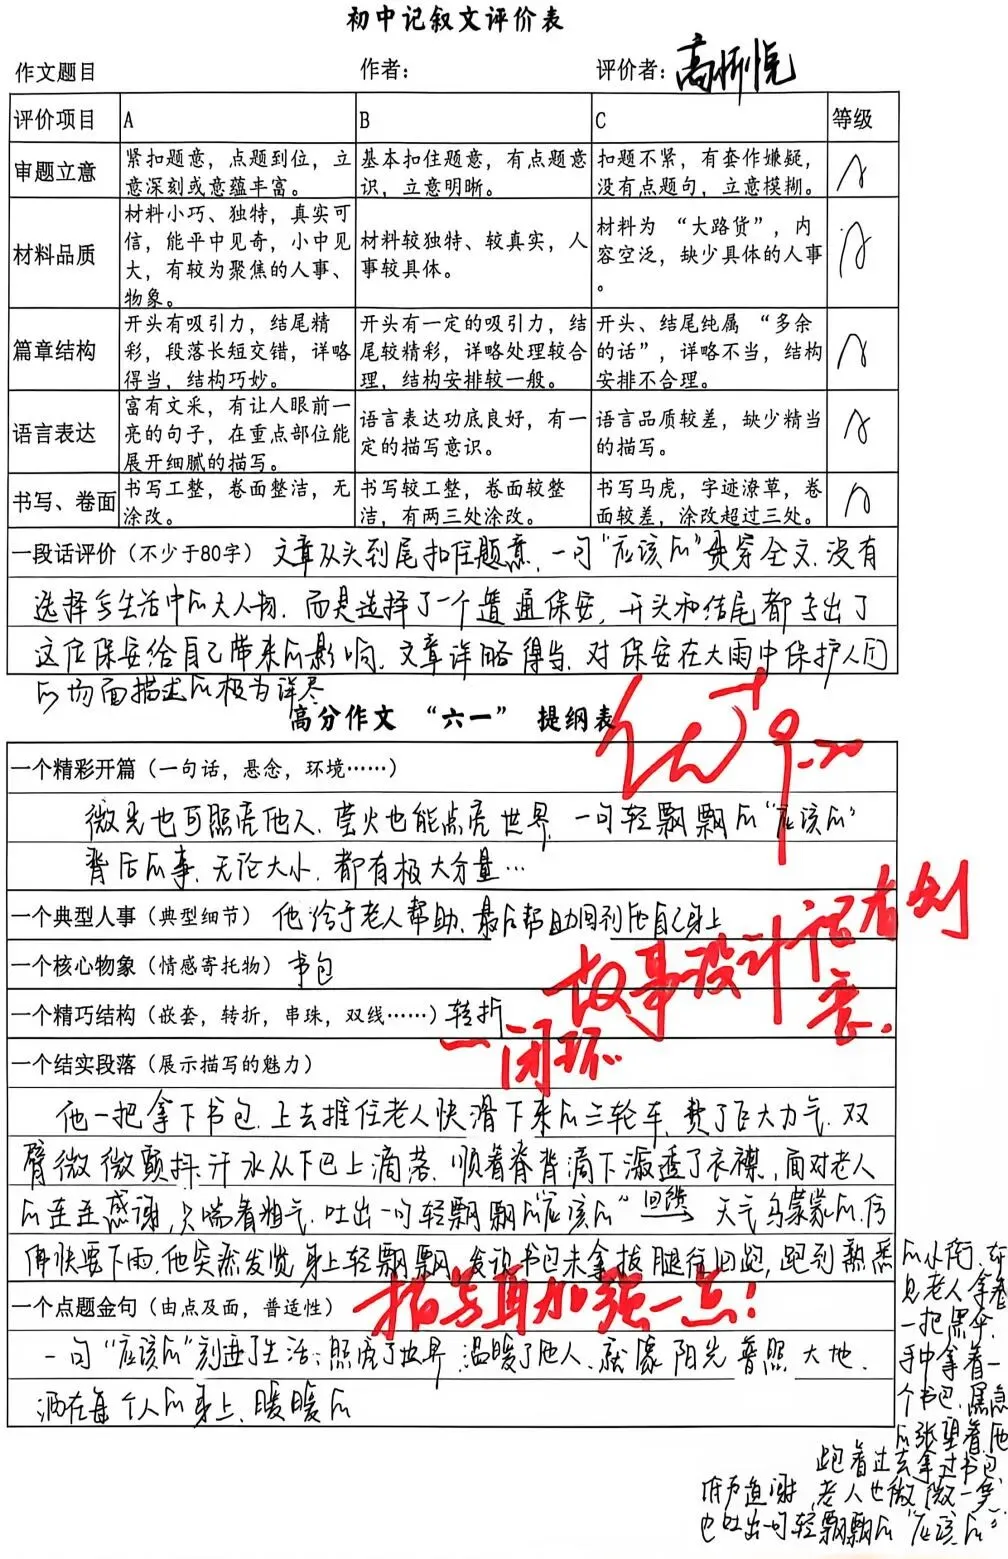 初中记叙文评价表
作文题目 作者： 评价者：高
评价项目 A B C 等级
审题立意 紧扣题意，点题到位，立意深刻或意蕴丰富。 基本扣住题意，有点题意识，立意明晰。 扣题不紧，有套作嫌疑，没有点题句，立意模糊。 A
材料品质 材料小巧、独特，真实可信，能平中见奇，小中见大，有较为聚焦的人事、物象。 材料较独特、较真实，人事较具体。 材料为“大路货”，内容空泛，缺少具体的人事。 A
篇章结构 开头有吸引力，结尾精彩，段落长短交错，详略得当，结构巧妙。 开头有一定的吸引力，结尾较精彩，详略处理较合理，结构安排较一般。 开头、结尾纯属“多余的话”，详略不当，结构安排不合理。 A
语言表达 富有文采，有让人眼前一亮的句子，在重点部位能展开细腻的描写。 语言表达功底良好，有一定的描写意识。 语言品质较差，缺少精当的描写。 A
书写、卷面 书写工整，卷面整洁，无涂改。 书写较工整，卷面较整洁，有两三处涂改。 书写马虎，字迹潦草，卷面较差，涂改超过三处。 A
一段话评价（不少于80字）文章从头到尾扣住题意，一句“应该的”贯穿全文.没有
选择多生活中的大人物.而是选择了一个普通保安，开头和结尾都写出了
这位保安给自己带来的影响.文章详略得当.对保安在大雨中保护人们
的场面描述的极为详尽
高分作文 “六一” 提纲表
优+
一个精彩开篇（一句话，悬念，环境……）
微光也可照亮他人.萤火也能点亮世界.一句轻飘飘的“应该的”
背后的事.无论大小.都有极大分量…
一个典型人事（典型细节）他给于老人帮助.最后帮助回到他自己身上
一个核心物象（情感寄托物）书包
故事设计很有创意.
一个精巧结构（嵌套，转折，串珠，双线……）转折
一闭环
一个结实段落（展示描写的魅力）
他一把拿下书包.上去推住老人快滑下来的三轮车.费了飞大力气.双
臂微微颤抖.汗水从下巴上滴落.顺着脊背滴下湿透了衣襟，面对老人
的连连感谢，只喘着粗气.吐出一句轻飘飘的“应该的” 回馈 天气乌蒙蒙的.仿
佛快要下雨.他突然发觉身上轻飘飘.发识书包未拿拔腿往回跑，跑到熟悉
的小街，只
见老人拿着
一把黑伞
手中拿着一
个书包.焦急
的张望着.他
跑着过去拿过书包
连声道谢，老人也微微一笑
也吐出一句轻飘飘的“应该的”
描写再加强一点！
一个点题金句（由点及面，普适性）
一句“应该的”刻进了生活；照亮了世界.温暖了他人.就像阳光普照大地.
洒在每个人的身上.暖暖的